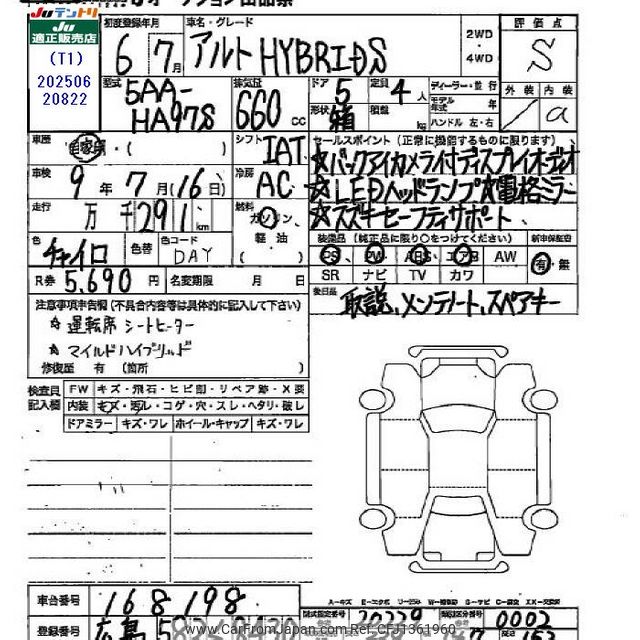 JUテントリ
JU
適正販売店
(T1)
202506
20822
初度登録年月
6 7月
車名・グレード
アルト HYBRID S
2WD
・
4WD
評価点
S
外装 内装
a
型式
5AA-
HA97S
排気量
660 cc
ドア 5
形状 箱
定員 4 人
積載 kg
ディーラー・並行
モデル年式 年
ハンドル 左・右
車歴
自家用
シフト IAT
車検 9年7月(16日)
冷房 AC
走行 万 千291 km
燃料 ガソリン
軽油
色 チャイロ
色替
色コード DAY
R券 5,690 円
名変期限 月 日
セールスポイント(正常に機能するものに限ります)
☆バックアイカメラ付ディスプレイオーディオ
☆LEDヘッドランプ☆電格ミラー
☆スズキセーフティサポート
装備品(純正品に限り○をつけてください)
新車保証書
PS PW ABS エアB AW
有・無
SR ナビ TV カワ
後日品
取説、メンテノート、スペアキー
注意事項申告欄(不具合内容等は具体的に記入して下さい)
☆ 運転席シートヒーター
☆ マイルドハイブリッド
修復歴 有 (箇所 )
検査員
記入欄
FW キズ・飛石・ヒビ割・リペア跡・X要
内装 キズ・汚レ・コゲ・穴・スレ・ヘタリ・破レ
ドアミラー キズ・ワレ ホイール・キャップ キズ・ワレ
車台番号 168198
登録番号 広島 5
20229
0002
www.CarFromJapan.com Ref. CFJ1361960